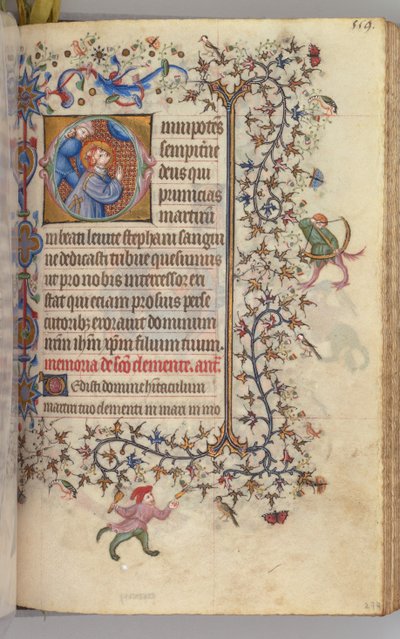 519.
Omnipotens
sempiterne
deus qui
primicias
martirū
in beati leuite stephani sangui
ne dedicasti tribue quesumus
ut pro nobis intercessor exi
stat qui eciam pro suis perse
cutoribz exorauit dominum
nr̄m ihm̄. xp̄m filium tuum.
memoria de sc̄o clemente. ant̄.
Dedisti domine habitaculum
martiri tuo clementi in mari in mo